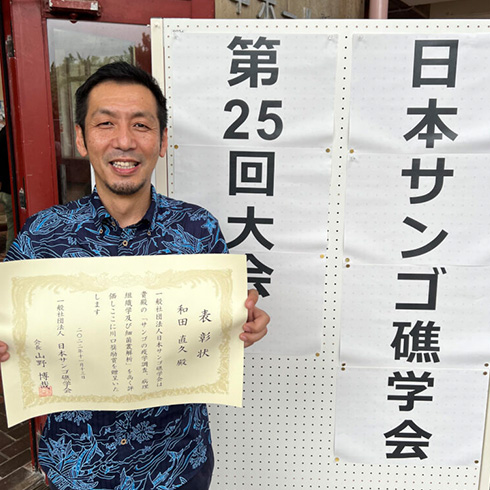 日本サンゴ礁学会
第25回大会
表彰状
和田 直久 殿
一般社団法人日本サンゴ礁学会は
貴殿の「サンゴの疫学調査、病理
組織学及び細菌叢解析」を高く評
価しここに川口奨励賞を贈呈いた
します
一般社団法人 日本サンゴ礁学会
会長 山野 博哉